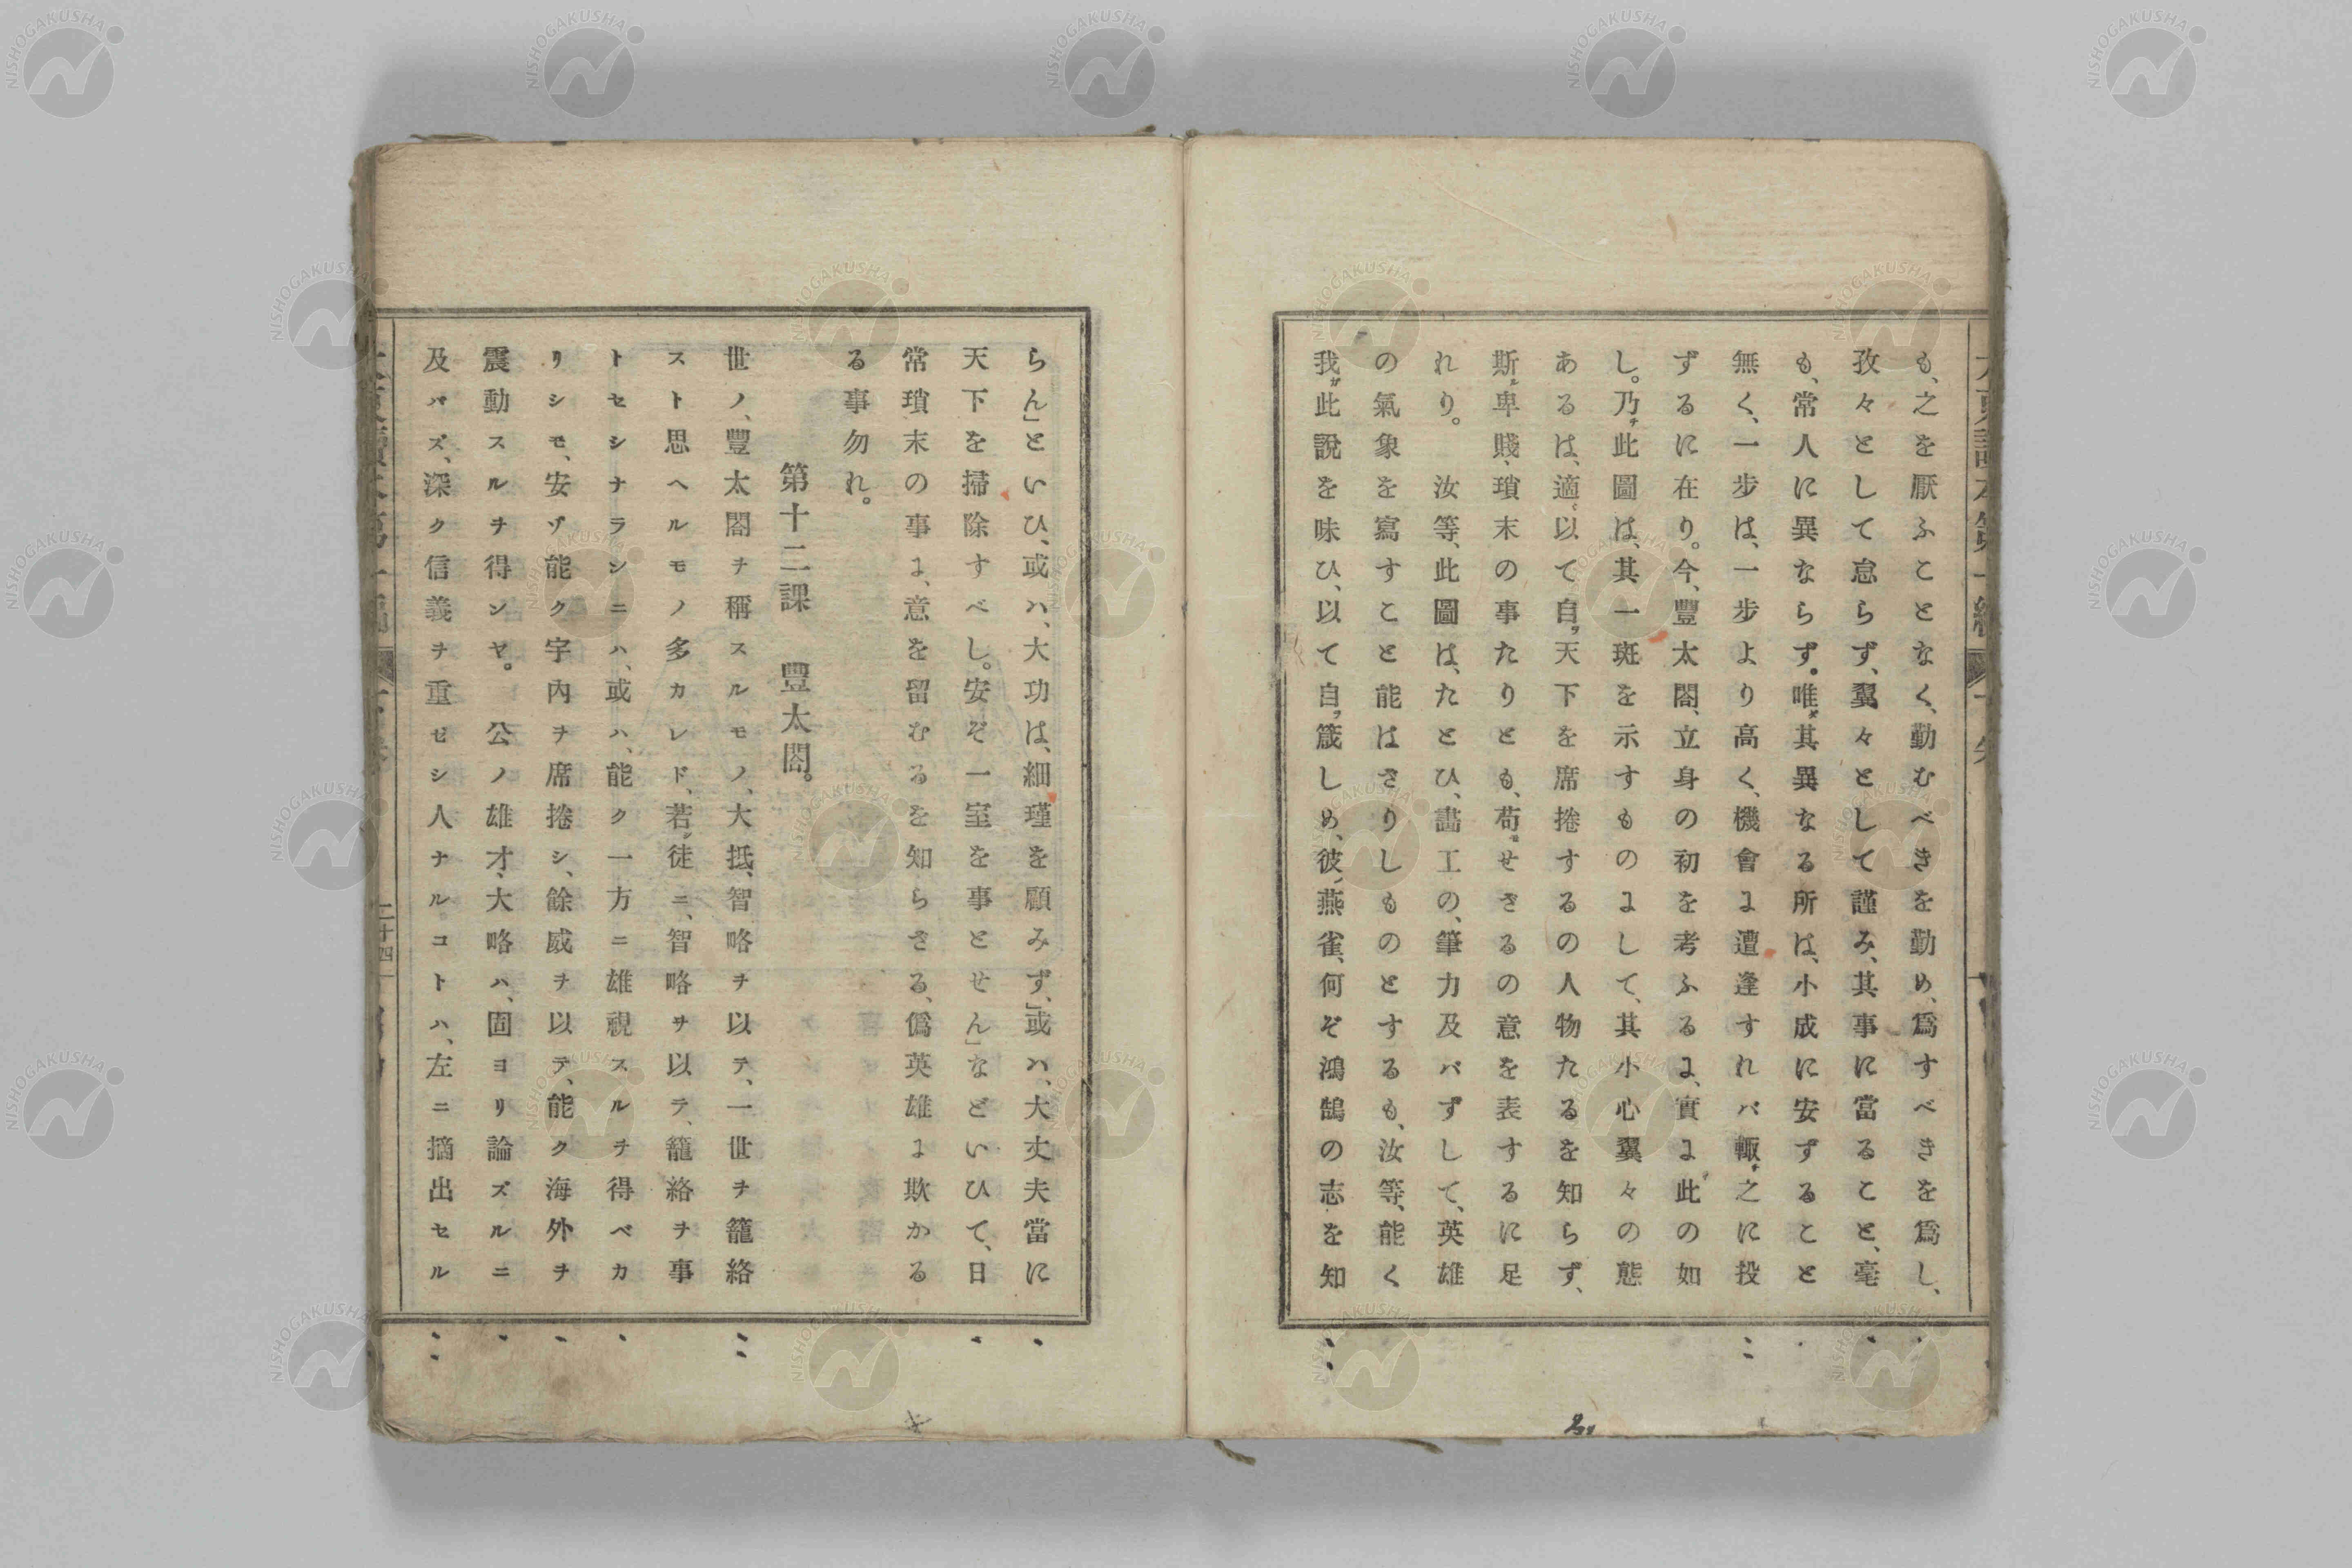 も、之を厭ふことなく、勤むべきを勤め、爲すべきを爲し、
孜々として怠らず、翼々として謹み、其事に當ること、毫
も、常人に異ならず。唯其異なる所は、小成に安ずること
無く、一歩は、一歩より高く、機會に遭逢すれバ輙之に投
ずるに在り。今、豐太閤、立身の初を考ふるに、實に此の如
し。乃此圖は、其一斑を示すものにして、其小心翼々の態
あるは、適以て自天下を席捲するの人物たるを知らず、
斯卑賤、瑣末の事たりとも、苟せざるの意を表するに足
れり。　汝等、此圖は、たとひ、畵工の、筆力及バずして、英雄
の氣象を寫すこと能はさりしものとするも、汝等、能く
我此說を味ひ、以て自箴しめ、彼燕雀、何ぞ鴻鵠の志を知
らん」といひ、或ハ、大功は、細瑾を顧みず、」或ハ、大丈夫當に
天下を掃除すべし。安ぞ一室を事とせん」などいひて、日
常瑣末の事に、意を留むるを知らさる、僞英雄に欺かる
る事勿れ。
第十二課　豐太閤。
世ノ、豐太閤ヲ稱スルモノ、大抵、智略ヲ以テ、一世ヲ籠絡
スト思ヘルモノ多カレド、若徒ニ、智略ヲ以テ、籠絡ヲ事
トセシナラシニハ、或ハ、能ク一方ニ雄視スルヲ得ベカ
リシモ、安ゾ能ク宇內ヲ席捲シ、餘威ヲ以テ、能ク海外ヲ
震動スルヲ得ンヤ。　公ノ雄才、大略ハ、固ヨリ論ズルニ
及バズ、深ク信義ヲ重ゼシ人ナルコトハ、左ニ摘出セル
二十四
NISHOGAKUSHA